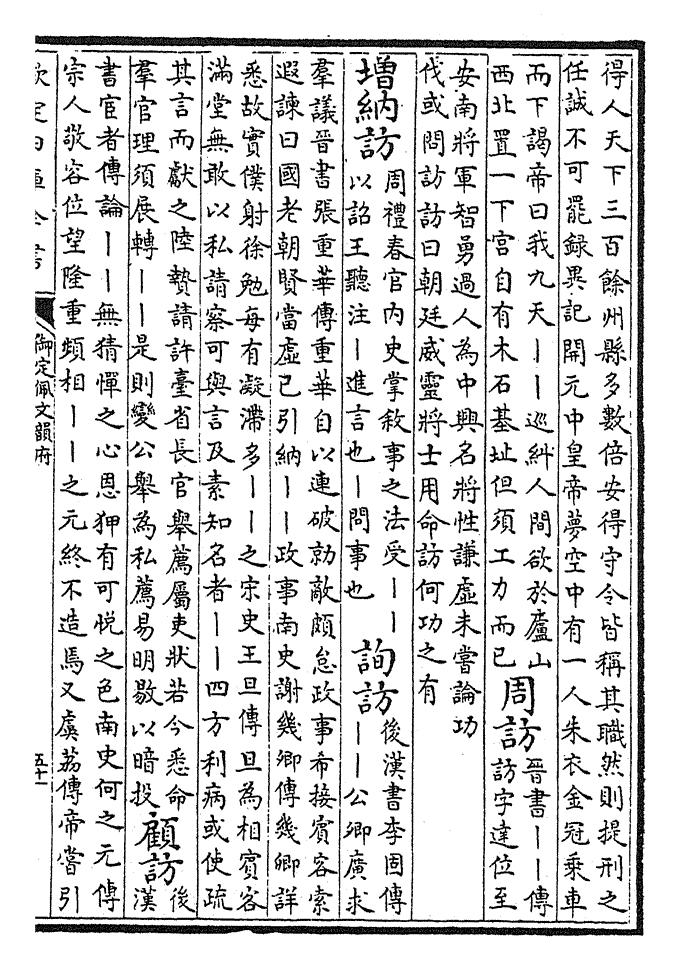 得人天下三百餘州縣多數倍安得守令皆稱其職然則提刑之
任誠不可罷録異記開元中皇帝夢空中有一人朱衣金冠乗車
而下謁帝曰我九天丨丨巡糾人間欲於廬山
西北置一下宮自有木石基址但須工力而已
周訪
晉書丨丨傳
訪字達位至
安南將軍智勇過人為中興名將性謙虛未嘗論功
伐或問訪訪曰朝廷威靈將士用命訪何功之有
増納訪
周禮春官內史掌敘事之法受丨丨
以詔王聽注丨進言也丨問事也
詢訪
後漢書李固傳
丨丨公卿廣求
羣議晉書張重華傳重華自以連破勍敵頗怠政事希接賓客索
遐諫曰國老朝賢當虛己引納丨丨政事南史謝幾卿傳幾卿詳
悉故實僕射徐勉每有凝滯多丨丨之宋史王旦傳旦為相賓客
滿堂無敢以私請察可與言及素知名者丨丨四方利病或使疏
其言而獻之陸贄請許臺省長官舉薦屬吏狀若今悉命
羣官理須展轉丨丨是則變公舉為私薦易明敭以暗投
顧訪
後
漢
書宦者傳論丨丨無猜憚之心恩狎有可悦之色南史何之元傳
宗人敬容位望隆重頻相丨丨之元終不造焉又虞荔傳帝嘗引
欽定四庫全書
御定佩文韻府
五十一